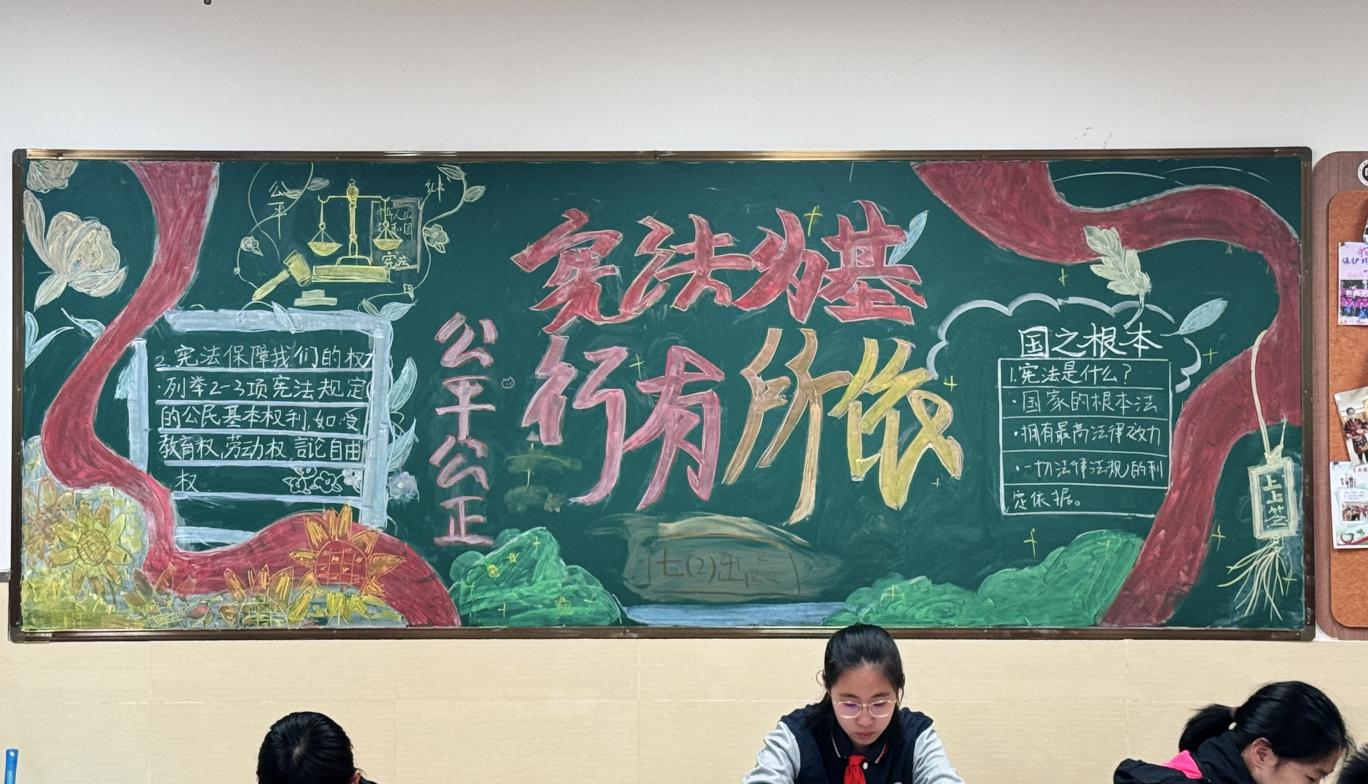 宪法为基
行有所依
公平公正
公平
宪法
2.宪法保障我们的权
·列举2-3项宪法规定
的公民基本权利,如:受
教育权,劳动权,言论自由
权
国之根本
1.宪法是什么?
·国家的根本法
·拥有最高法律效力
·一切法律法规的制
定依据。
上上签
七(2)出品